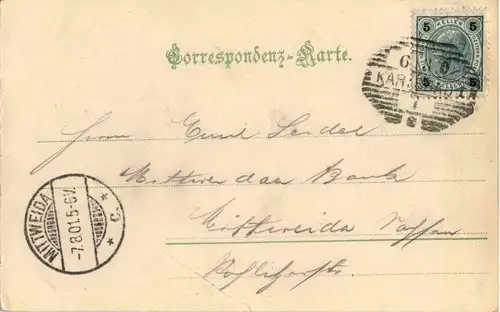 5 HELLER 5
5 5
Correspondenz-Karte.
KAR
Herrn Emil Seidel
Mittweidaer Bank
Mittweida Sachsen
Rochlitzerstr.
MITTWEIDA
-7.8.01.5-6V.
* c. *